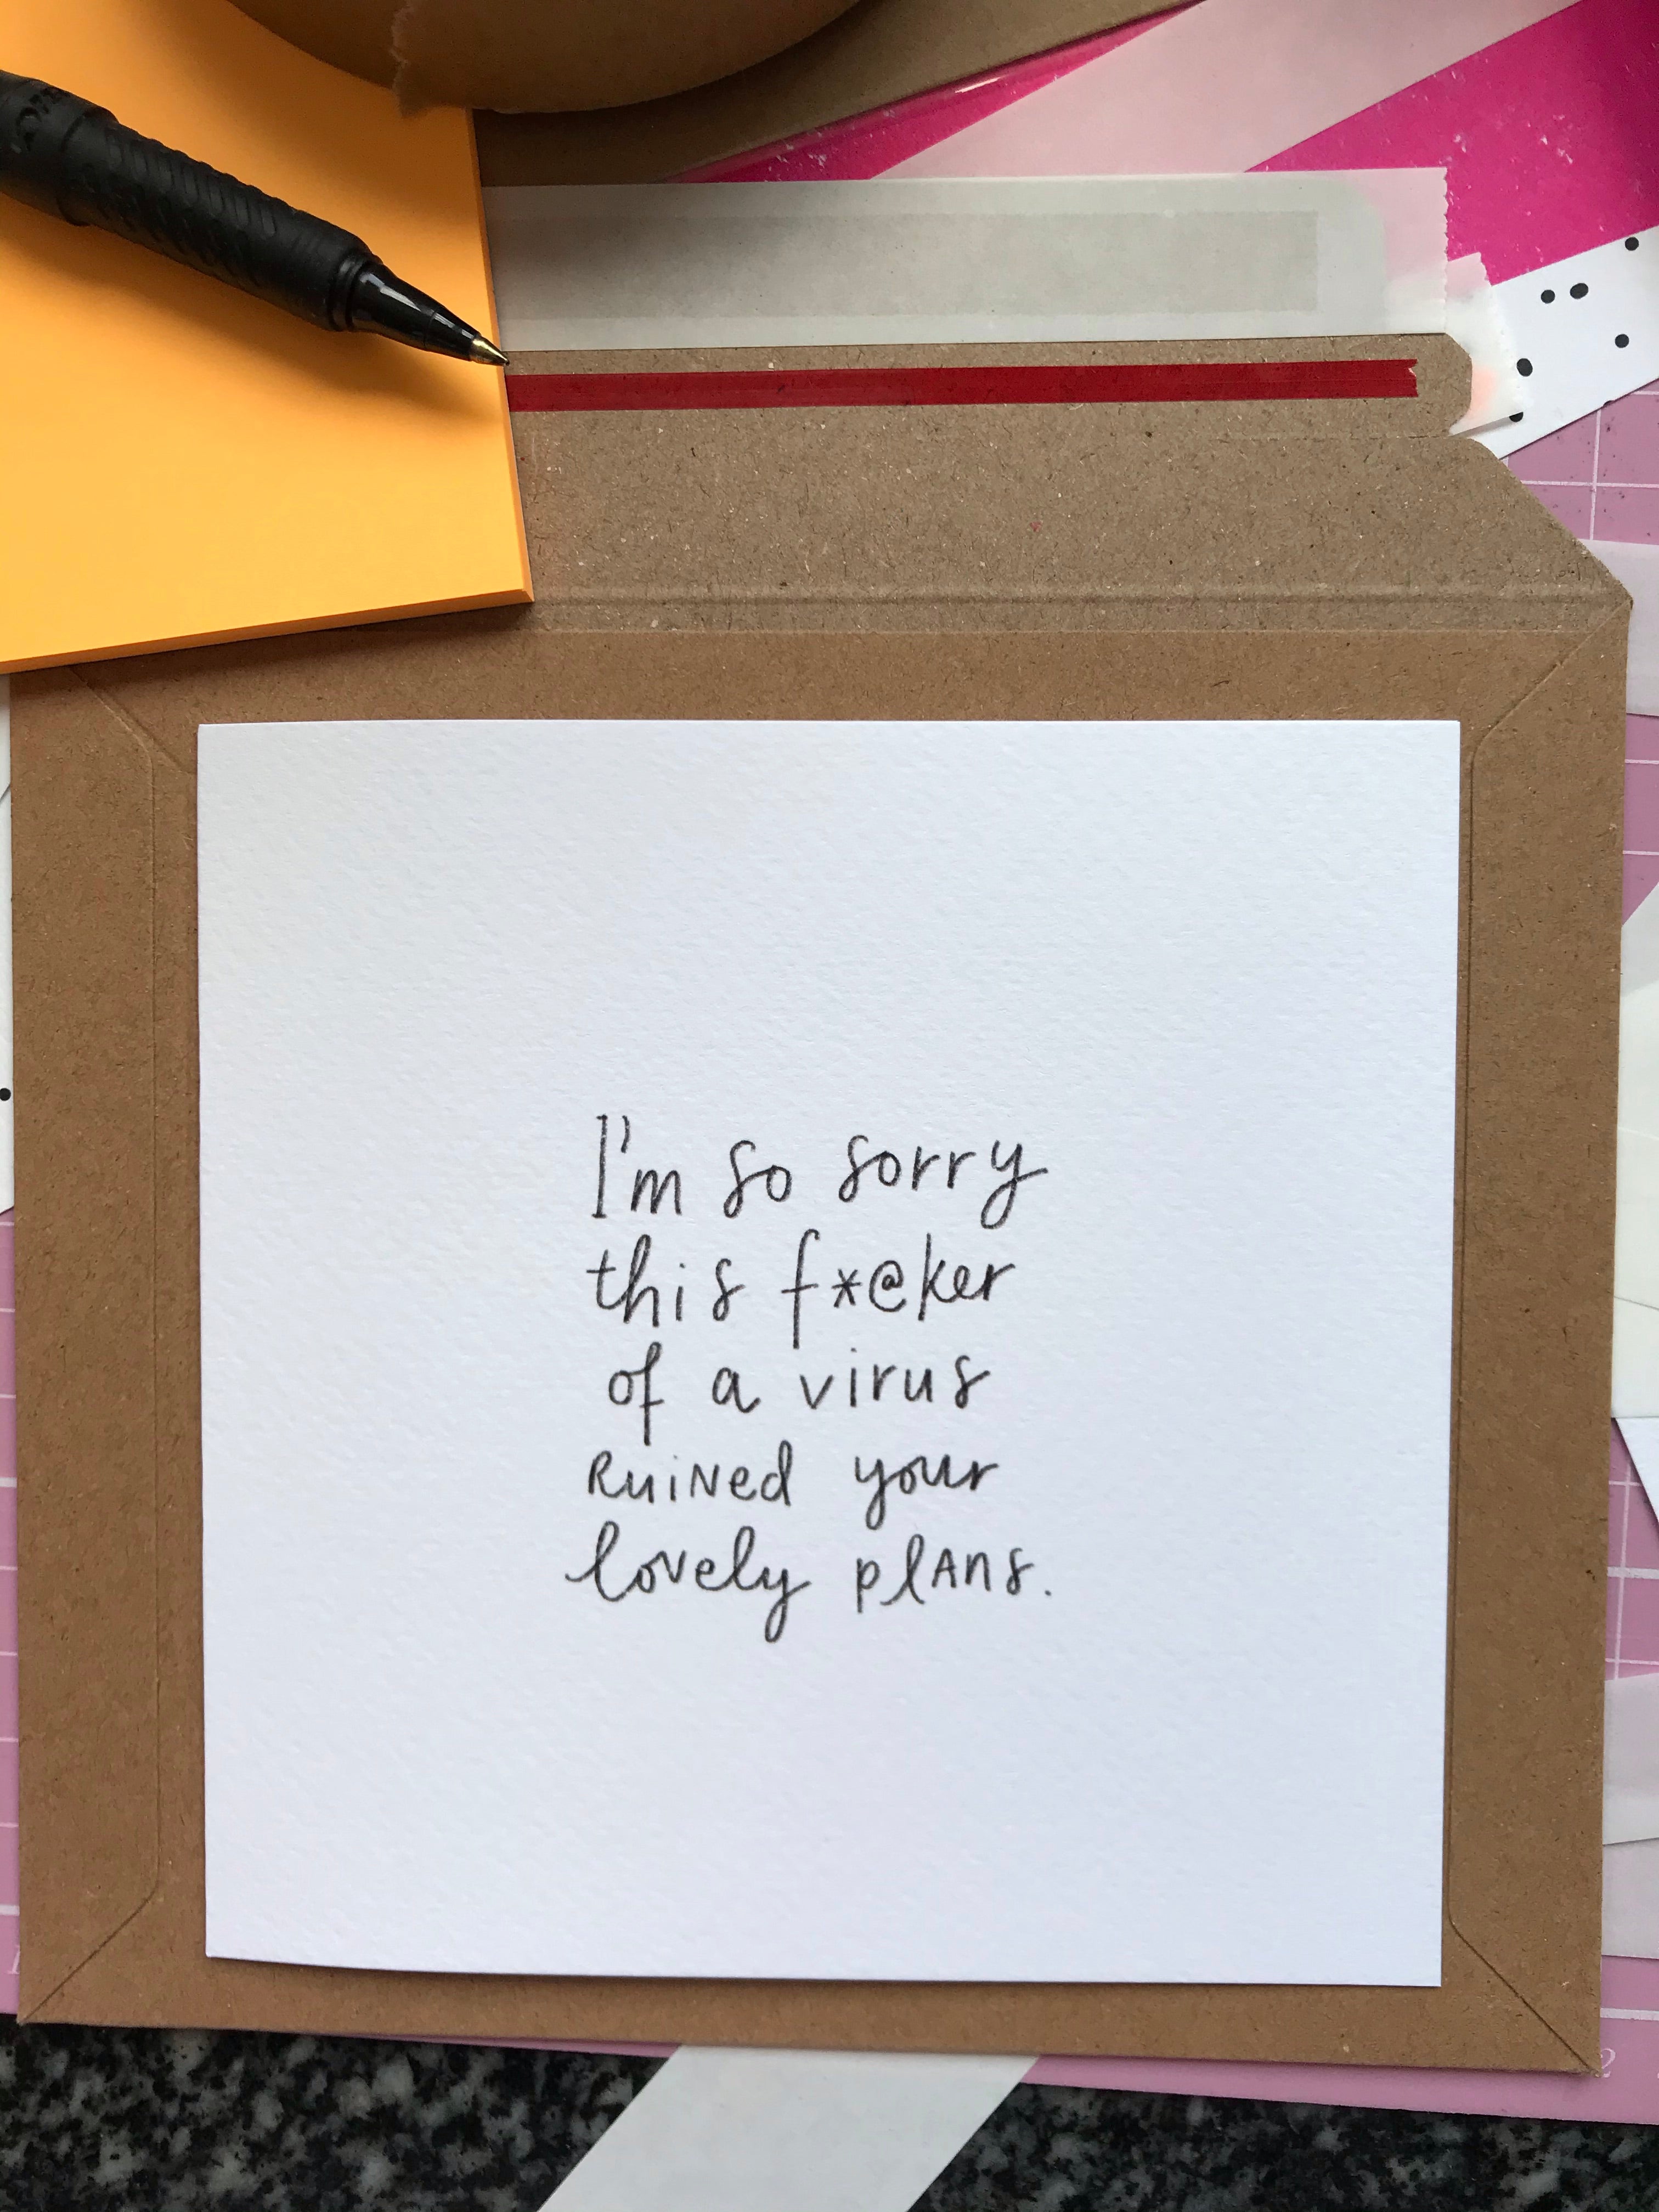 I'm so sorry
this f*@ker
of a virus
RuiNed your
lovely plAns.